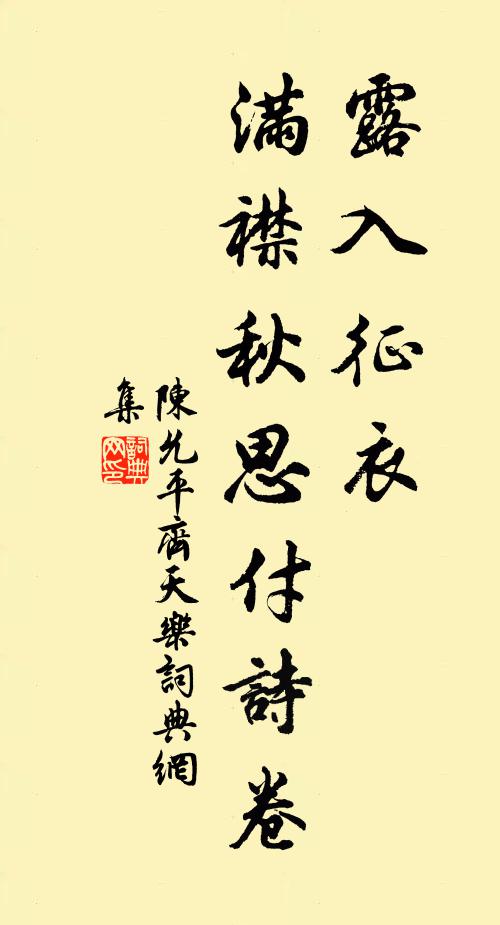 露入征衣
滿襟秋思付詩卷
陳允平齊天樂詞典網
集
詞典网印